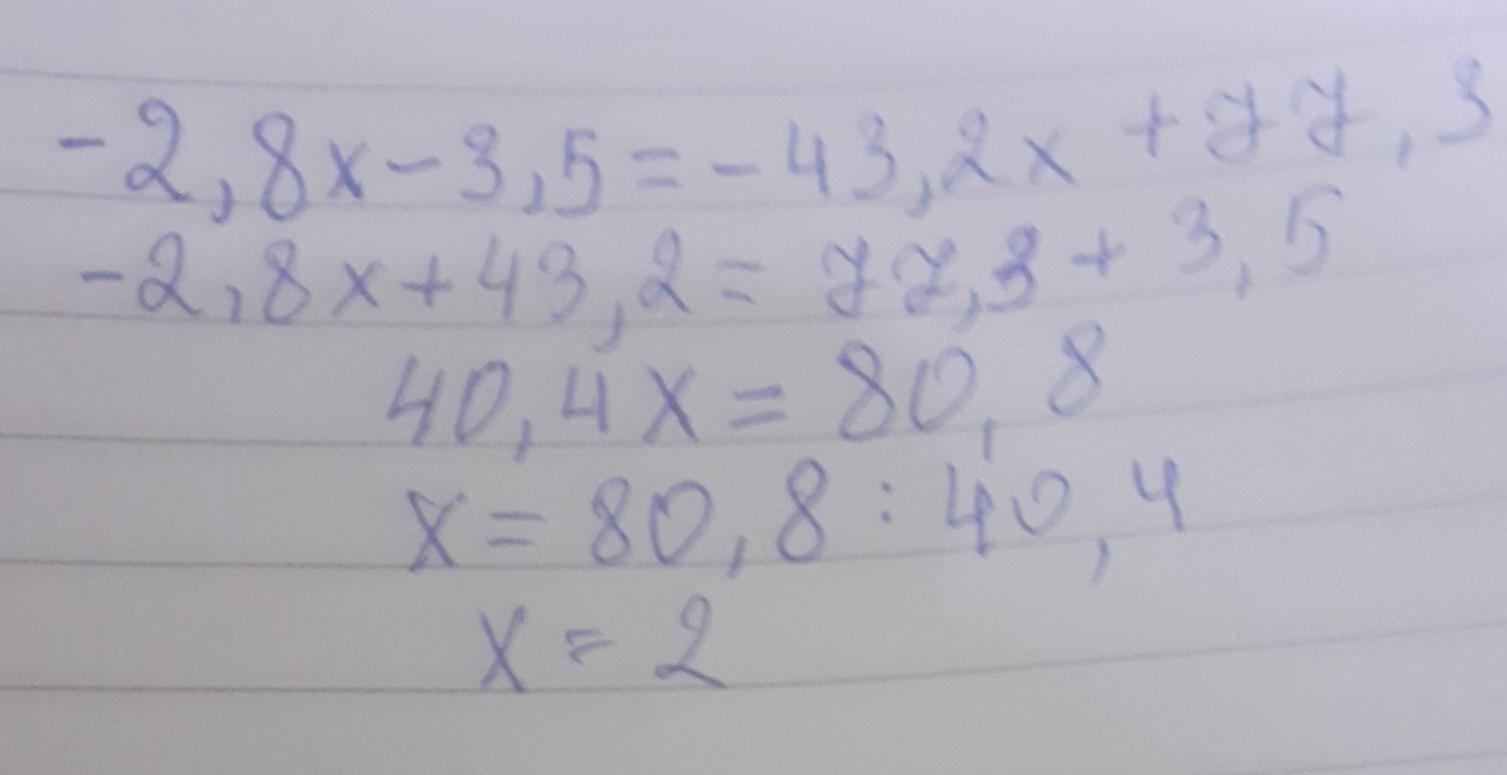 -2,8x-3,5=-43,2x+77,3
-2,8x+43,2=77,3+3,5
40,4x=80,8
x=80,8:40,4
x=2